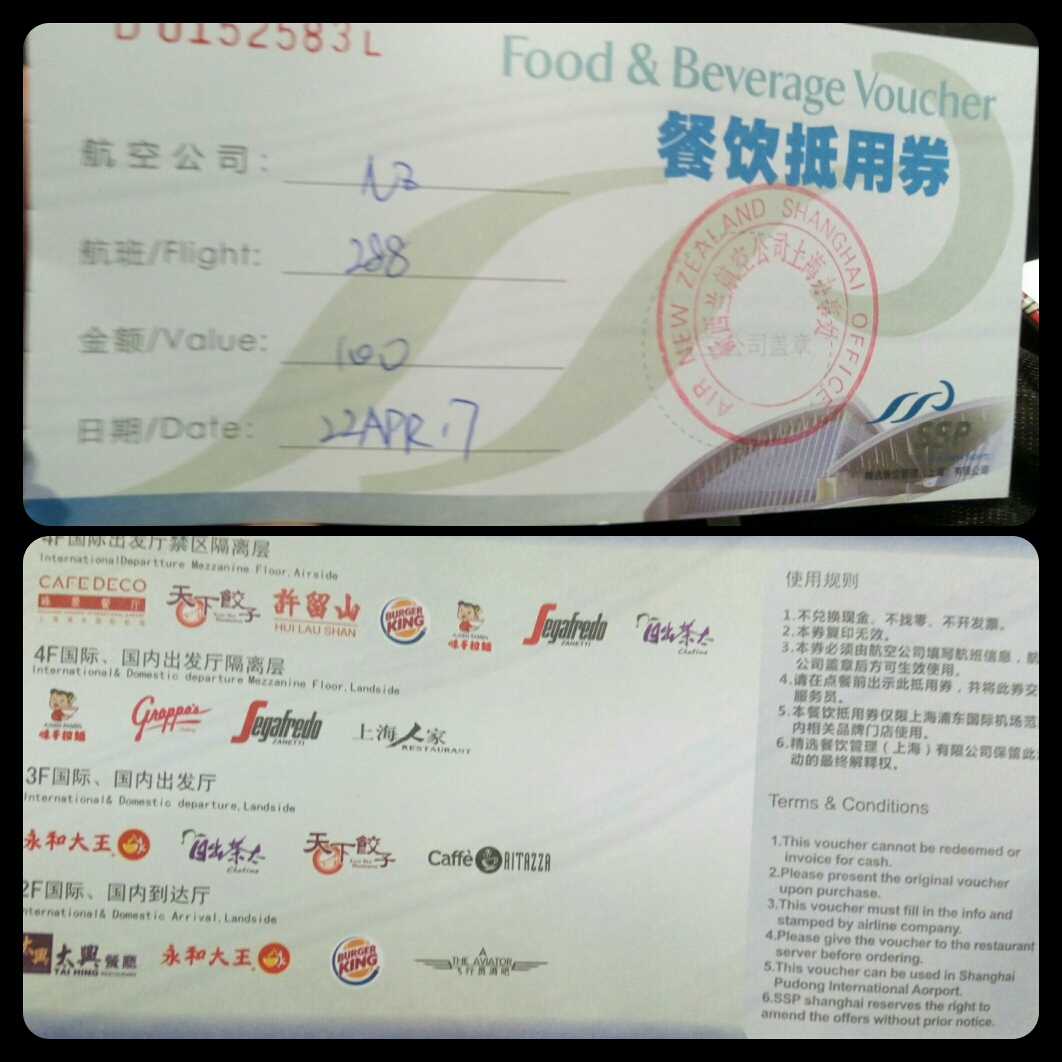 D 0152583 L
Food & Beverage Voucher
餐饮抵用券
航空公司: NZ
航班/Flight: 288
金额/Value: 100
日期/Date: 22APR.17
AIR NEW ZEALAND SHANGHAI OFFICE
新西兰航空公司上海办事处
公司盖章
SSP
精选餐饮管理（上海）有限公司
4F国际出发厅禁区隔离层
InternationalDepartture Mezzanine Floor,Airside
CAFE DECO
峰景餐厅
天下餃子
許留山
HUI LAU SHAN
BURGER KING
AJISEN RAMEN
味千拉麵
Segafredo
ZANETTI
日出茶太
Chatime
4F国际、国内出发厅隔离层
International& Domestic departure Mezzanine Floor,Landside
AJISEN RAMEN
味千拉麵
Grappa's
Segafredo
ZANETTI
上海人家
RESTAURANT
3F国际、国内出发厅
International& Domestic departure,Landside
永和大王
日出茶太
Chatime
天下餃子
Caffè RITAZZA
2F国际、国内到达厅
nternational& Domestic Arrival,Landside
太興
太興餐廳
TAI HING RESTAURANT
永和大王
BURGER KING
THE AVIATOR
飞行员酒吧
使用规则
1.不兑换现金、不找零、不开发票。
2.本券复印无效。
3.本券必须由航空公司填写航班信息，航
公司盖章后方可生效使用。
4.请在点餐前出示此抵用券，并将此券交
服务员。
5.本餐饮抵用券仅限上海浦东国际机场范
内相关品牌门店使用。
6.精选餐饮管理（上海）有限公司保留此
动的最终解释权。
Terms & Conditions
1.This voucher cannot be redeemed or
invoice for cash.
2.Please present the original voucher
upon purchase.
3.This voucher must fill in the info and
stamped by airline company.
4.Please give the voucher to the restaurant
server before ordering.
5.This voucher can be used in Shanghai
Pudong International Aorport.
6.SSP shanghai reserves the right to
amend the offers without prior notice.